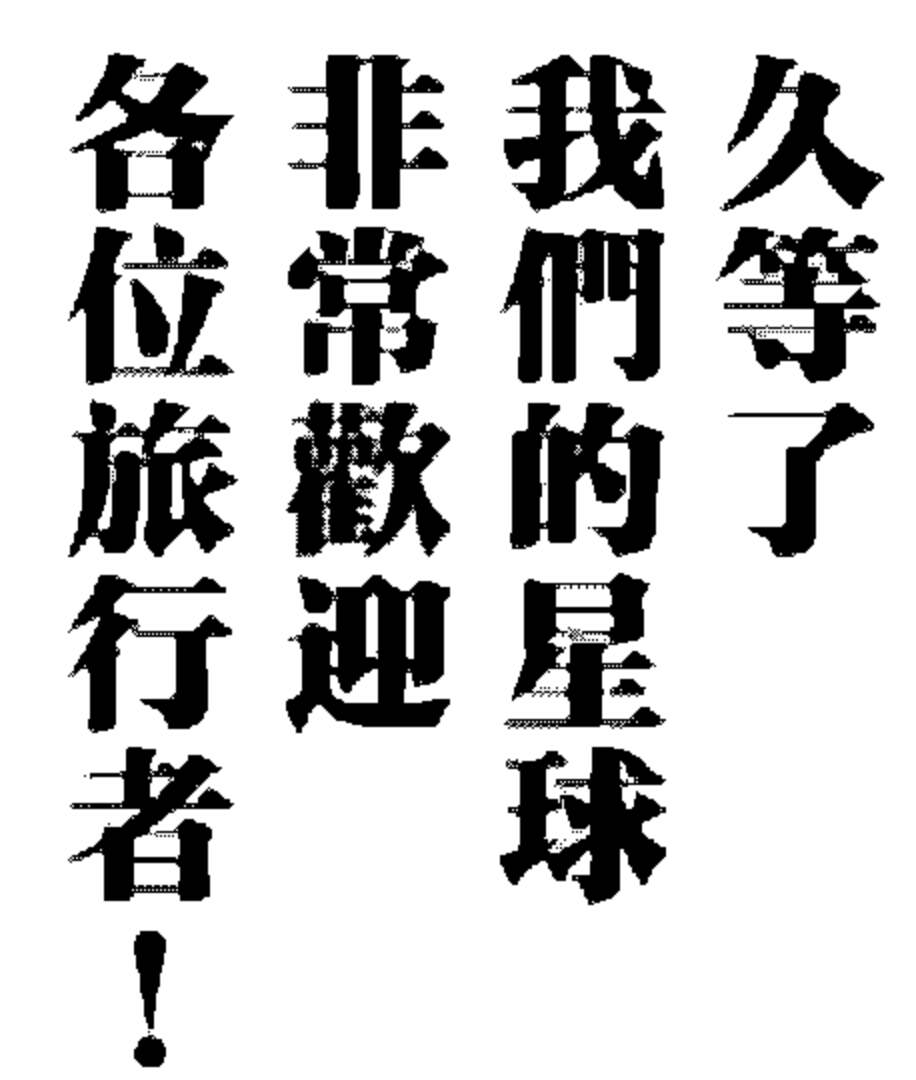 久等了
我們的星球
非常歡迎
各位旅行者！